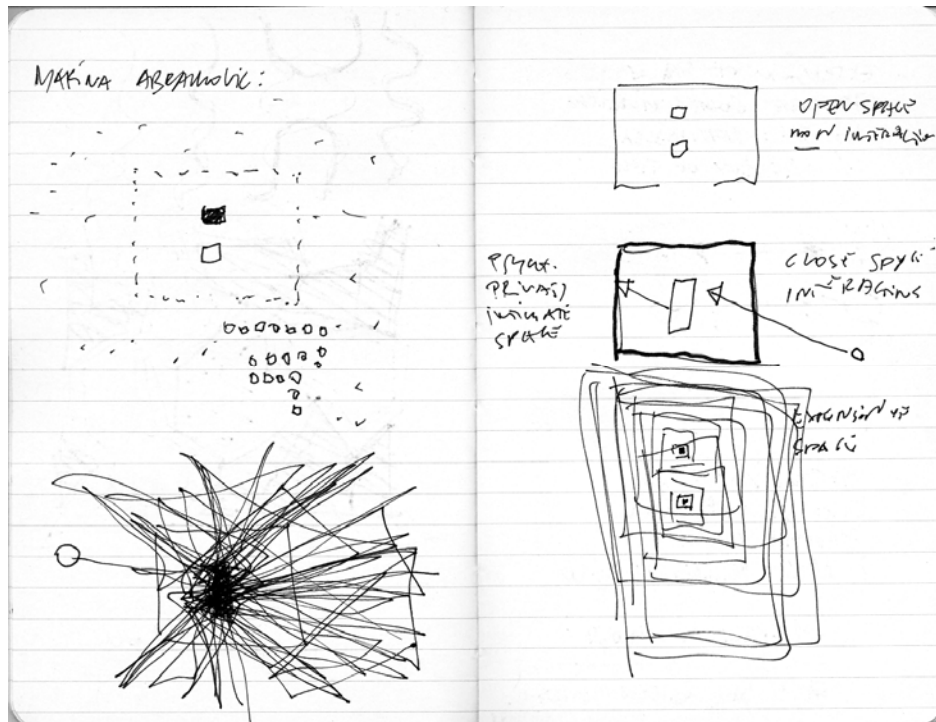 MARINA ABRAMOVIC:
OPEN SPACE
NON INTERACTIVE
PRIVACY
INTIMATE
SPACE
CLOSE SPACE
INTERACTING
EXPANSIVE
SPACE